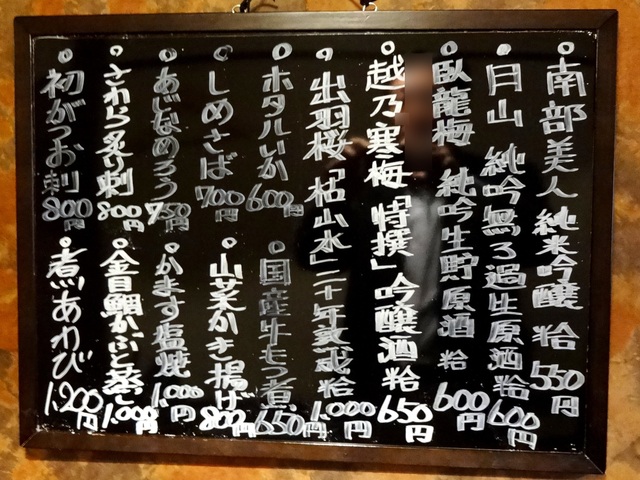 南部美人 純米吟醸 粭 550円
月山 純吟無ろ過生原酒 粭 600円
臥龍梅 純吟生貯原酒 粭 600円
越乃寒梅「特撰」吟醸酒 粭 650円
出羽桜「枯山水」二十年熟成 粭 1,000円
ホタルいか 600円
国産牛もつ煮 650円
しめさば 700円
山菜かき揚げ 800円
あじなめろう 750円
かます塩焼 1,000円
さわら炙り刺 800円
金目鯛かぶと蒸し 1,000円
初がつお刺 800円
煮あわび 1,200円